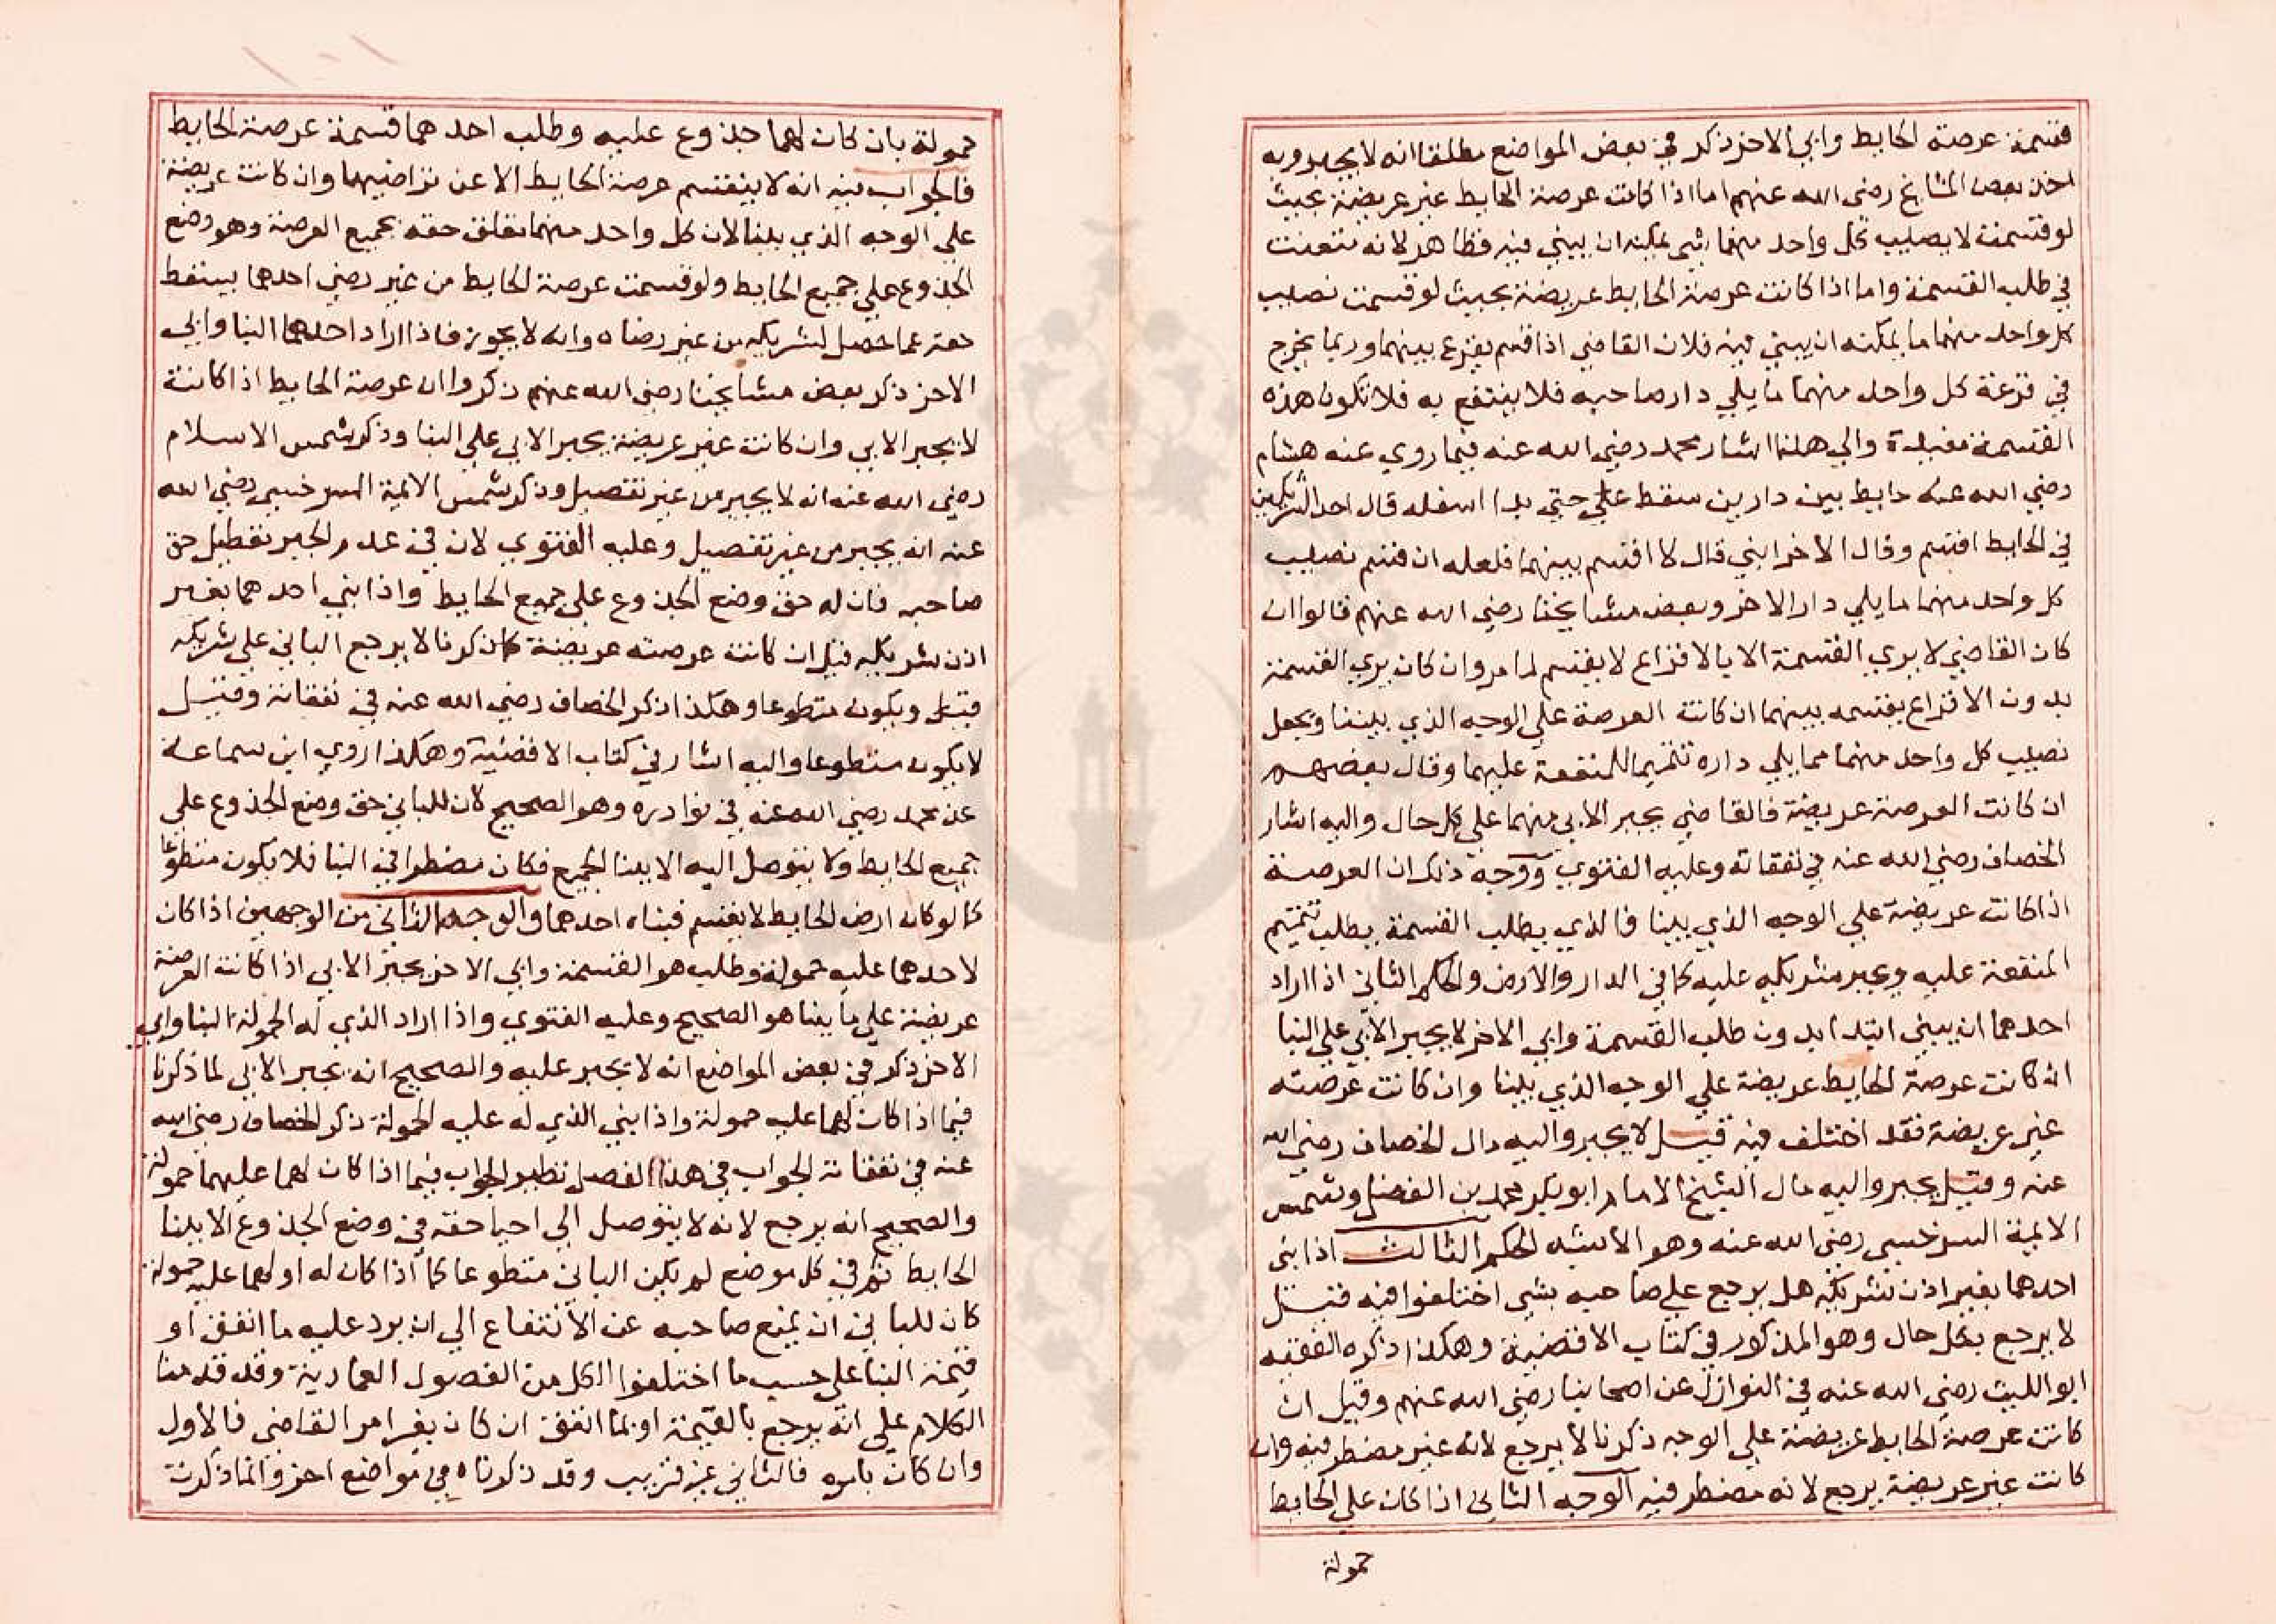 قسمة عرصة الحايط وابي الاخر ذكر في بعض المواضع مطلقا انه لا يجبر وبه
اخذ بعض المشايخ رضي الله عنهم اما اذا كانت عرصة الحايط غير عريضة بحيث
لو قسمت لا يصيب كل واحد منهما شي يمكنه ان يبني فيه فظاهر لانه متعنت
في طلب القسمة واما اذا كانت عرصة الحايط عريضة بحيث لو قسمت نصيب
كل واحد منهما ما يمكنه ان يبني فيه فلان القاضي اذا قسم يقرع بينهما وربما يخرج
في قرعة كل واحد منهما ما يلي دار صاحبه فلا ينتفع به فلا تكون هذه
القسمة مفيدة والي هذا اشار محمد رضي الله عنه فيما روي عنه هشام
رضي الله عنه حايط بين دارين سقط علي حتي بدا اسفله قال احد الشريكين
في الحايط اقسم وقال الاخر ابني قال لا اقسم بينهما فلعله ان قسم نصيب
كل واحد منهما ما يلي دار الاخر وبعض مشايخنا رضي الله عنهم قالوا ان
كان القاضي لا يري القسمة الا بالاقراع لا يقسم لما مر وان كان يري القسمة
بدون الاقراع يقسمه بينهما ان كانت العرصة علي الوجه الذي بيننا ويجعل
نصيب كل واحد منهما مما يلي داره تتميما للمنفعة عليهما وقال بعضهم
ان كانت العرصة عريضة فالقاضي يجبر الابي منهما علي كل حال واليه اشار
الخصاف رضي الله عنه في نفقاته وعليه الفتوي ووجه ذلك ان العرصة
اذا كانت عريضة علي الوجه الذي بينا فالذي يطلب القسمة يطلب تتميم
المنفعة عليه ويجبر شريكه عليه كما في الدار والارض والحكم الثاني اذا اراد
احدهما ان يبني ابتدا بدون طلب القسمة وابي الاخر لا يجبر الابي علي البنا
ان كانت عرصة الحايط عريضة علي الوجه الذي بينا وان كانت عرصته
غير عريضة فقد اختلف فيه قيل لا يجبر واليه مال الخصاف رضي الله
عنه وقيل يجبر واليه مال الشيخ الامام ابو بكر محمد بن الفضل وشمس
الايمة السرخسي رضي الله عنه وهو الاشبه الحكم الثالث اذا بني
احدهما بغير اذن شريكه هل يرجع علي صاحبه بشي اختلفوا فيه قيل
لا يرجع بكل حال وهو المذكور في كتاب الاقضية وهكذا ذكره الفقيه
ابو الليث رضي الله عنه في النوازل عن اصحابنا رضي الله عنهم وقيل ان
كانت عرصة الحايط عريضة علي الوجه ذكرنا لا يرجع لانه غير مضطر فيه وان
كانت غير عريضة يرجع لانه مضطر فيه الوجه الثاني اذا كان علي الحايط
حمولة
حمولة بان كان لهما جذوع عليه وطلب احدهما قسمة عرصة الحايط
فالجواب فيه انه لا ينقسم عرصة الحايط الا عن تراضيهما وان كانت عريضة
علي الوجه الذي بينا لان كل واحد منهما تعلق حقه بجميع العرصة وهو وضع
الجذوع علي جميع الحايط ولو قسمت عرصة الحايط من غير رضي احدهما يسقط
حقه عما حصل لشريكه من غير رضاه وانه لا يجوز فاذا اراد احدهما البنا وابي
الاخر ذكر بعض مشايخنا رضي الله عنهم ذكروا ان عرصة الحايط اذا كانت
لا يجبر الابي وان كانت غير عريضة يجبر الابي علي البنا وذكر شمس الاسلام
رضي الله عنه انه لا يجبر من غير تفصيل وذكر شمس الايمة السرخسي رضي الله
عنه انه يجبر من غير تفصيل وعليه الفتوي لان في عدم الجبر تعطيل حق
صاحبه فان له حق وضع الجذوع علي جميع الحايط واذا بني احدهما بغير
اذن شريكه قيل ان كانت عرصته عريضة كما ذكرنا لا يرجع الباني علي شريكه
قيل ويكون متطوعا وهكذا ذكر الخصاف رضي الله عنه في نفقاته وقيل
لا يكون متطوعا واليه اشار في كتاب الاقضية وهكذا روي ابن سماعة
عن محمد رضي الله عنه في نوادره وهو الصحيح لان للباني حق وضع الجذوع علي
جميع الحايط ولا يتوصل اليه الا ببنا الجميع فكان مضطرا في البنا فلا يكون متطوعا
كما لو كان ارض الحايط لا يقسم فبناه احدهما والوجه الثاني من الوجهين اذا كان
لاحدهما عليه حمولة وطلب هو القسمة وابي الاخر يجبر الابي اذا كانت العرصة
عريضة علي ما بينا هو الصحيح وعليه الفتوي واذا اراد الذي له الحمولة البنا وابي
الاخر ذكر في بعض المواضع انه لا يجبر عليه والصحيح انه يجبر الابي لما ذكرنا
فيما اذا كان لهما عليه حمولة واذا بني الذي له عليه الحمولة ذكر الخصاف رضي الله
عنه في نفقاته الجواب في هذا الفصل نظير الجواب فيما اذا كان لهما عليهما حمولة
والصحيح انه يرجع لانه لا يتوصل الي احيا حقه في وضع الجذوع الا ببنا
الحايط ثم في كل موضع لم يكن الباني متطوعا كما اذا كان له او لهما عليه حمولة
كان للباني ان يمنع صاحبه عن الانتفاع الي ان يرد عليه ما انفق او
قيمة البنا علي حسب ما اختلفوا الكل من الفصول العمادية وقد قدمنا
الكلام علي انه يرجع بالقيمة او بما انفق ان كان بغير امر القاضي فالاول
وان كان بامره فالثاني عن قريب وقد ذكرناه في مواضع اخر وانما ذكرت